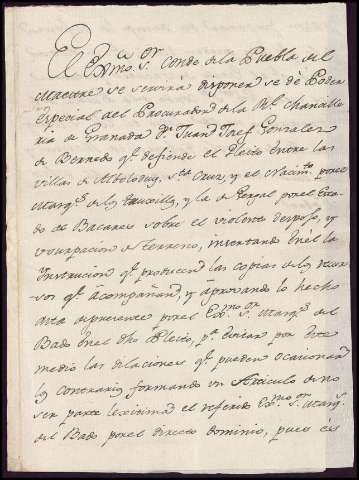 El Exmo. Sor. Conde de la Puebla del
Maestre se servirá disponer se dè Poder
especial al Procurador de la Rl. Chancille
ria de Granada Dn. Juan Josef Gonzalez
de Bernedo qe. defiende el Pleito entre las
villas de Alboloduy, Sta. Cruz, y el Nacimto. por el
Marqs. de los Trujillos, y la de Gergal por el Esta
do de Bacares sobre el violento despojo, y
usurpacion de terreno, insertando en él la
Instrucion qe. producen las copias de los recur
sos qe. acompañan, y aprovando lo hecho
asta el presente por el Exmo. Sor. Marqs. del
Bado en el dho Pleito, pa. evitar por este
medio las dilaciones qe. pueden ocasionar
los contrarios formando un Articulo de no
ser parte lexitima el referido Exmo. Sor. Marqs.
del Bado por el directo dominio, pues és